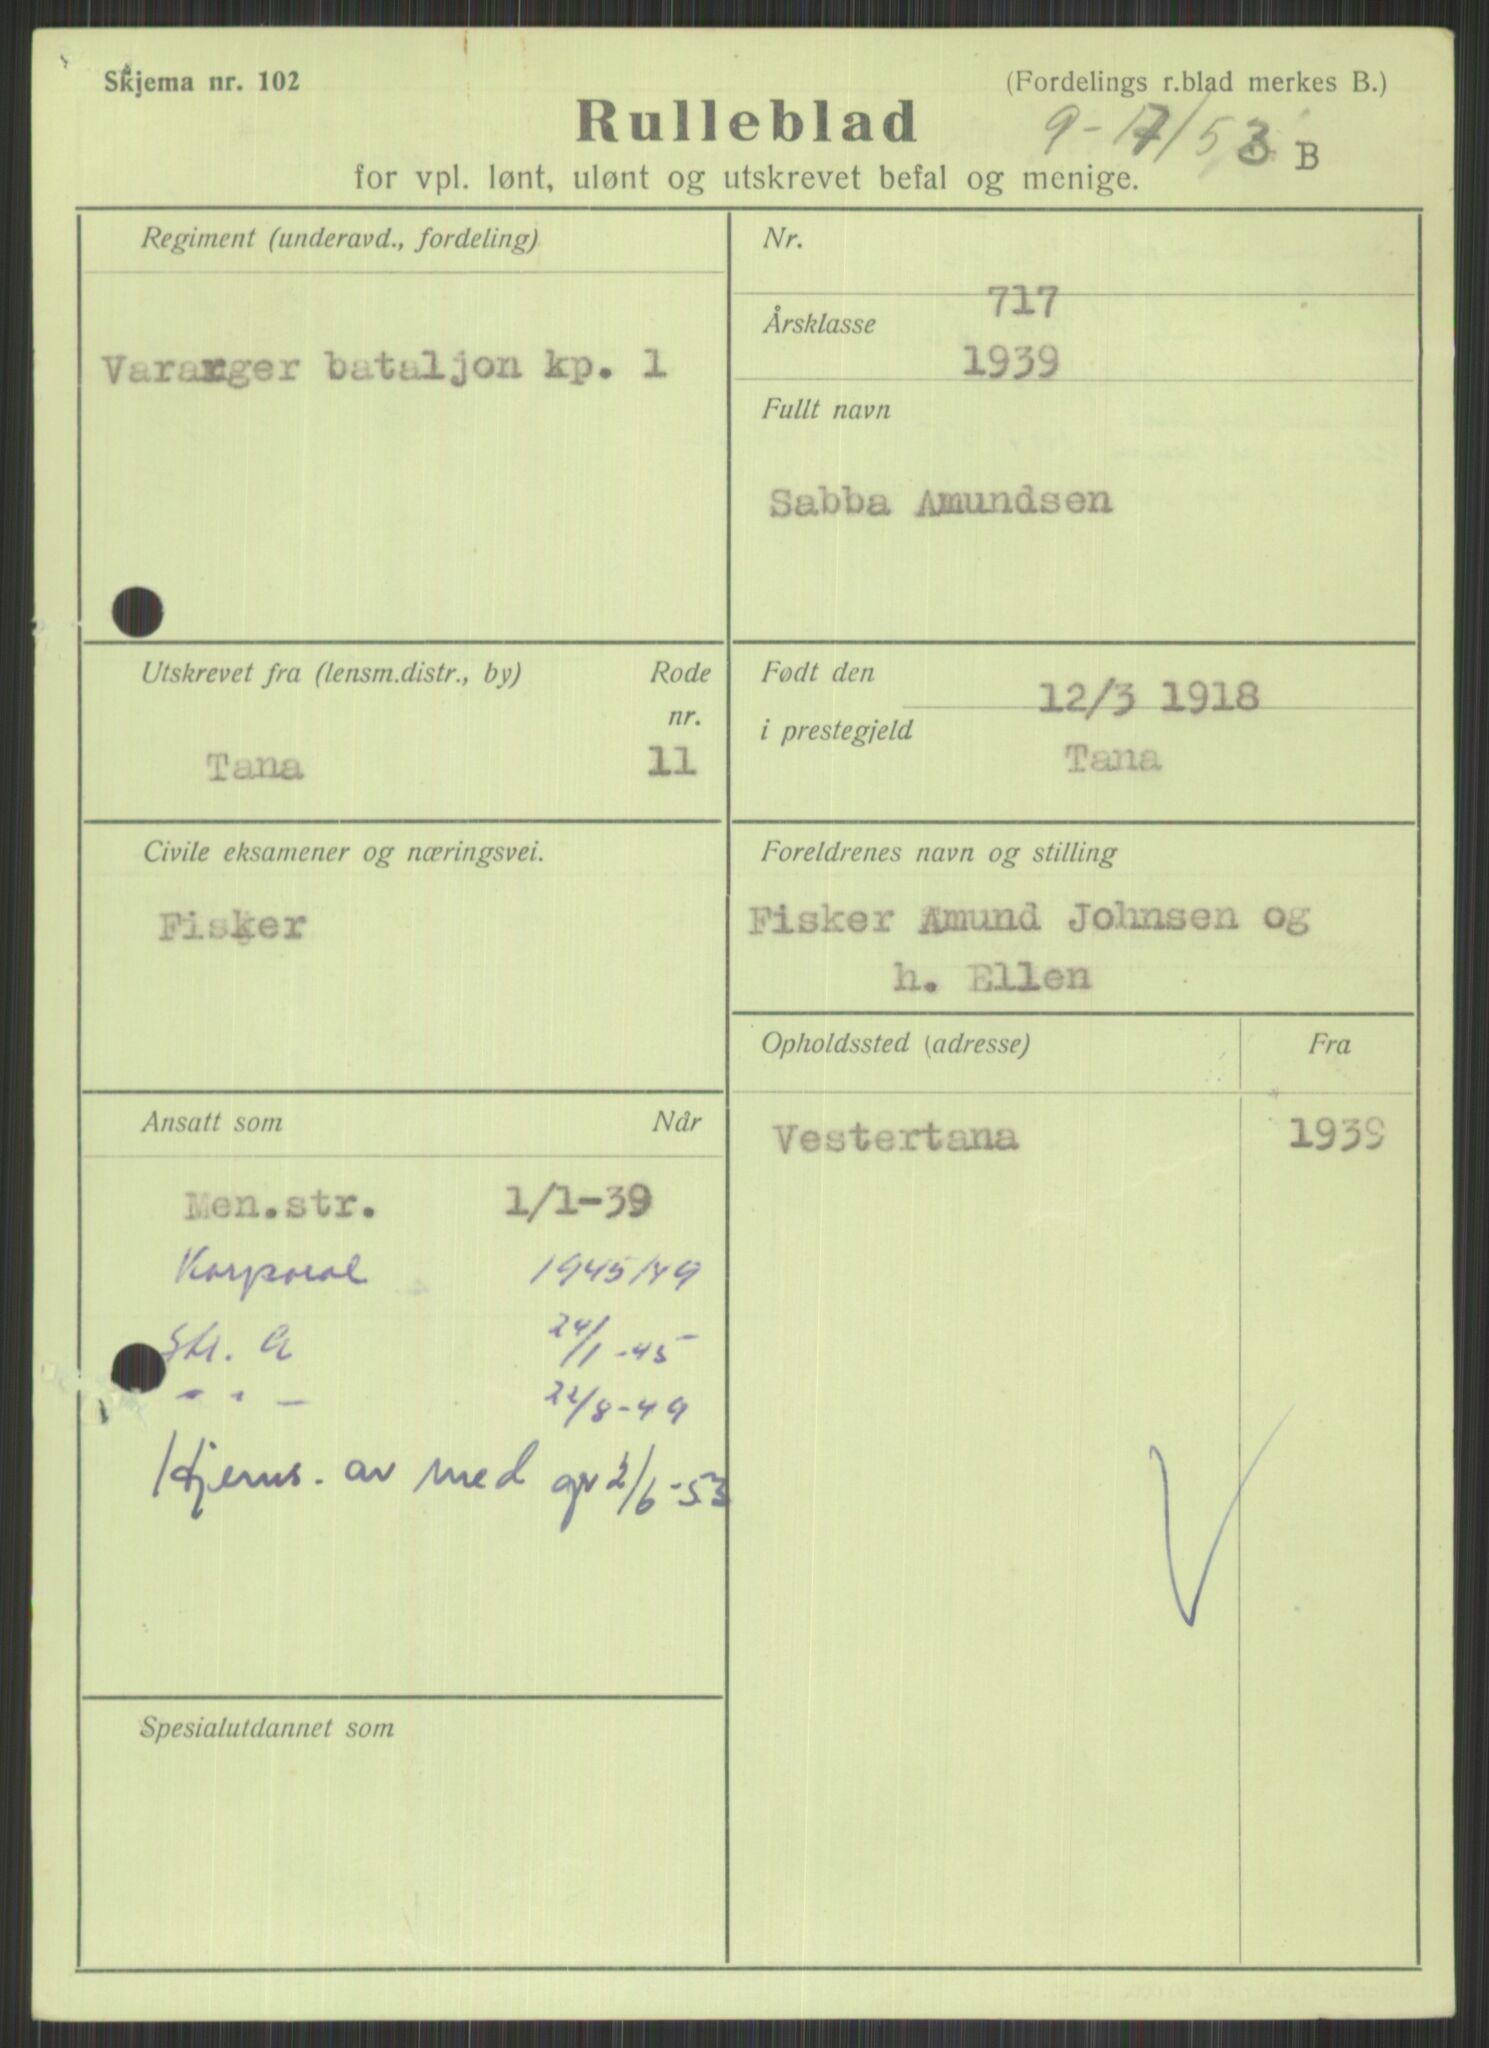 Skjema nr. 102
(Fordelings r.blad merkes B.)
Rulleblad
9-17/53 B
for vpl. lønt, ulønt og utskrevet befal og menige.
Regiment (underavd., fordeling)
Vararger bataljon kp. 1
Nr.
717
Årsklasse
1939
Fullt navn
Sabba Amundsen
Utskrevet fra (lensm.distr., by)
Rode
nr.
Tana
11
Født den
12/3 1918
i prestegjeld
Tana
Civile eksamener og næringsvei.
Fisker
Foreldrenes navn og stilling
Fisker Amund Johnsen og
h. Ellen
Opholdssted (adresse)
Fra
Vestertana
1939
Ansatt som
Når
Men.str. 1/1-39
Korporal 1945/49
Str. A 24/1-45
" " - 22/8-49
Hjems. av med gr 2/6-53
Spesialutdannet som